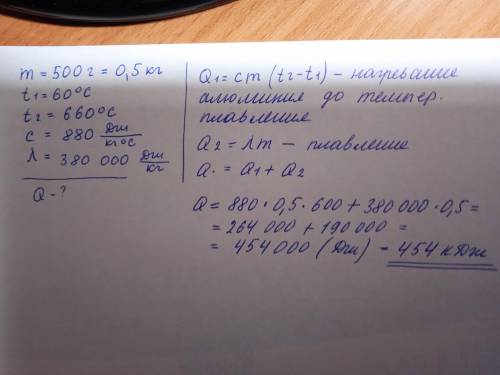 m = 500 г = 0,5 кг
t₁ = 60°C
t₂ = 660°C
c = 880 Дж/кг°C
λ = 380 000 Дж/кг
Q - ?
Q₁ = cm (t₂ - t₁) - нагревание
алюминия до темпер.
плавления
Q₂ = λm — плавление
Q = Q₁ + Q₂
Q = 880 · 0,5 · 600 + 380 000 · 0,5 =
= 264 000 + 190 000 =
= 454 000 (Дж) - 454 кДж